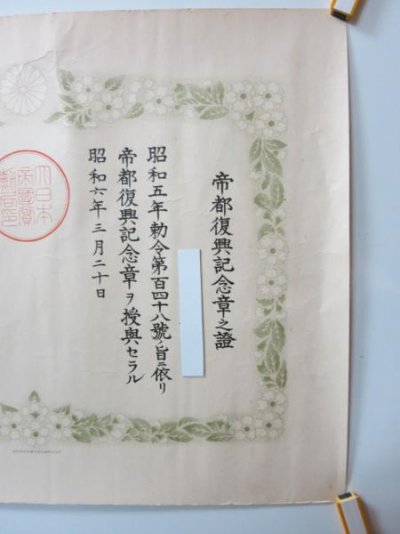 帝都復興記念章之證
昭和五年勅令第百四十八號ノ旨ニ依リ
帝都復興記念章ヲ授與セラル
昭和六年三月二十日
大日本
帝國賞
勲局印